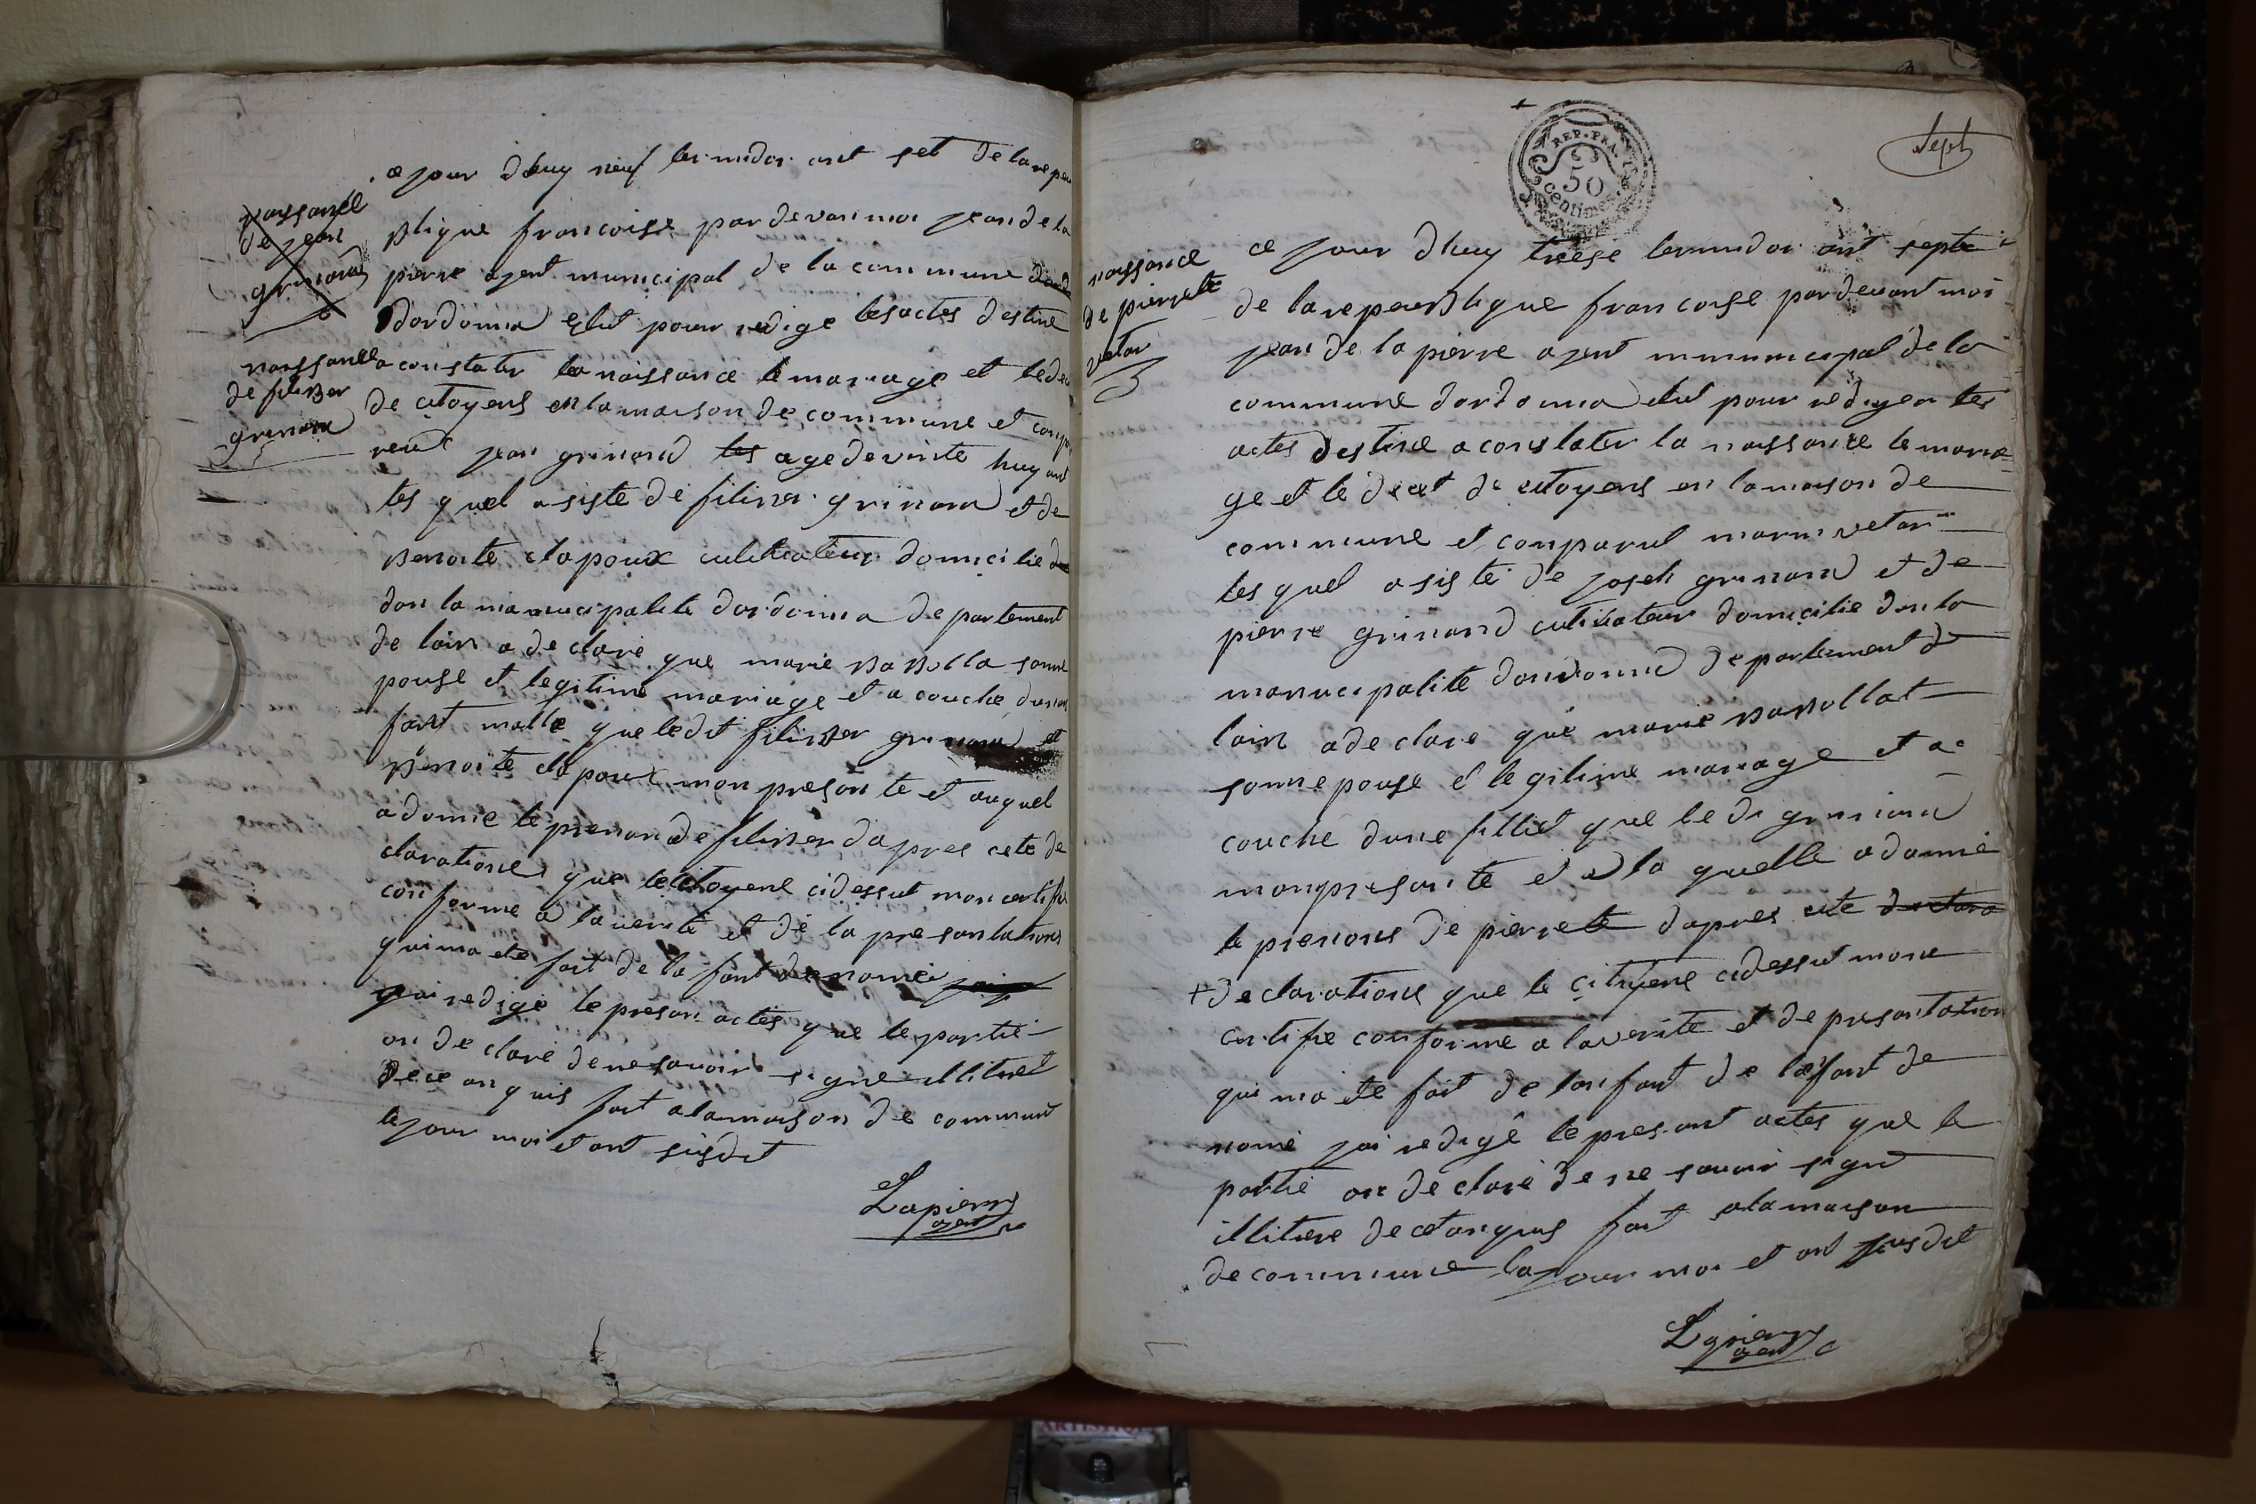 naissance
de jean
grinand
naissance
de filiber
grinand
ce jour dhuy neuf termidor ant set de la repu
blique francoise par devan moi jean de la
pierre ajent municipal de la commune
dordonna elut pour redige les actes destine
a constater la naissance le mariage et le de
de citoyens en la maison de commune et conpa
reut jean grinand les age de vinte huy ant
les quel a siste de filiber grinand et de
benoite clapoux cultivateur domicilie
dan la manucipalite dordonna departement
de lain a declare que marie babolla sonne
pouse et legitime mariage et a couche dun
fant malle que ledit filiber grinand et
benoite clapoux mon presan te et auquel
a donne le prenon de filiber dapres cete de
claratione que le citoyene cidessut mon certifie
conforme a la verite et de la presantations
qui ma ete fait de la fant de nome
jai redige le presan actes que le partie
on declare de ne savoir signe illitret
de ce on quis fait a la maison de commune
le jour moi et ant susdit
Lapierre
ajent
REP. FRA.
50
centimes
sept
naissance
de pierrete
vetar
ce jour dhuy treise termidor ant septe
de la repeublique francoise par devant moi
jean de la pierre ajent mununicipal de la
commune dordonna elut pour rediger les
actes destine a constater la naissance le maria
ge et le decet de citoyens en la maison de
commune et conparut marin vetar
les quel a siste de joseh grinand et de
pierre grinand cultivateur domicilie dan la
manucipalite dordonna departement de
lain a declare que marie babollat
sonne pouse et legitime mariage et a
couche dune fillet que le di grinand
mon presan te et a la quelle a donne
le prenons de pierrete dapres cete declara
+ declarations que le citoyene cidessut mone
certifie conforme a la verite et de presantation
qui ma ete fait de lanfant de lafant de
nome jai redige le presant actes que le
partie on declare de ne savoir signe
illitere de ce on quis fait a la maison
de commune la jour moi et ant susdit
Lapierre
ajent